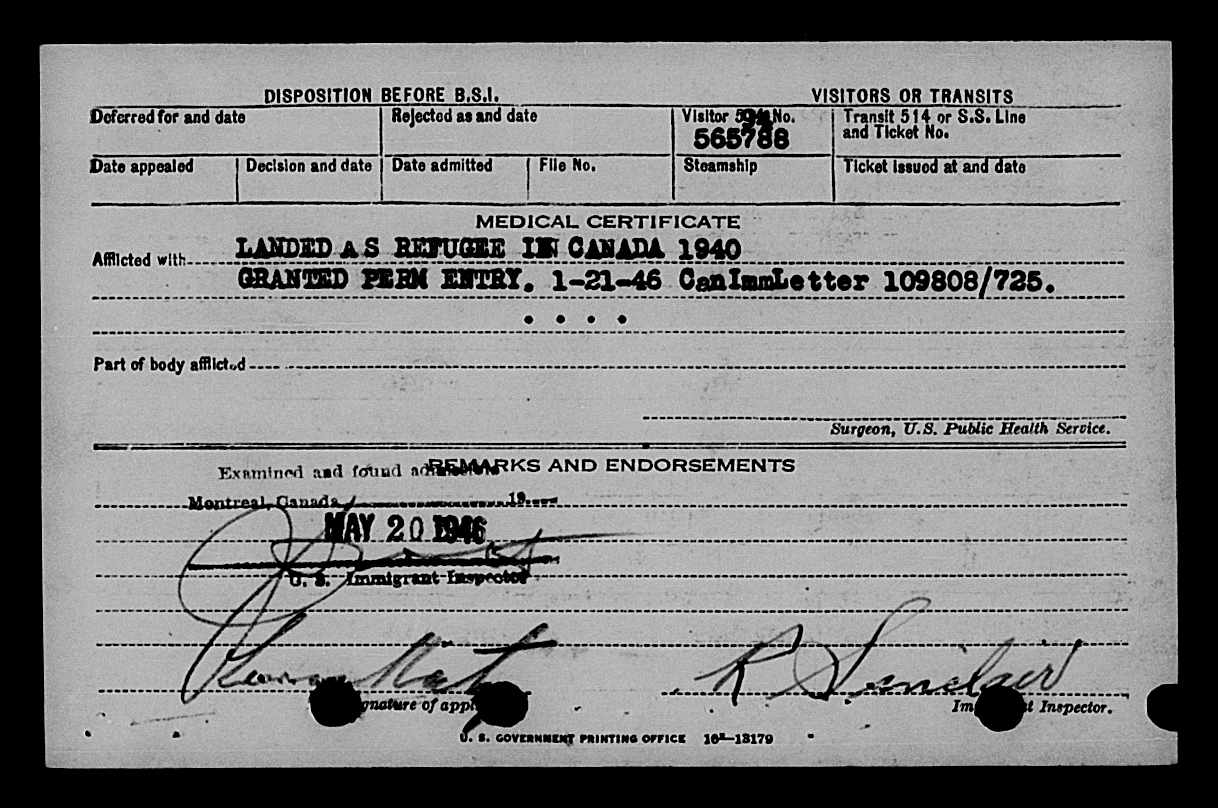 DISPOSITION BEFORE B.S.I. VISITORS OR TRANSITS
Deferred for and date Rejected as and date Visitor No. Transit 514 or S.S. Line
and Ticket No.
565788
Date appealed Decision and date Date admitted File No. Steamship Ticket issued at and date
MEDICAL CERTIFICATE
Afflicted with LANDED AS REFUGEE IN CANADA 1940
GRANTED PERM ENTRY. 1-21-46 CanImmLetter 109808/725.
. . . .
Part of body afflicted
Surgeon, U.S. Public Health Service.
REMARKS AND ENDORSEMENTS
Examined and found
Montreal, Canada 19
MAY 20 1946
U. S. Immigrant Inspector
R Sinclair
Signature of Inspector.
U. S. GOVERNMENT PRINTING OFFICE 16—13179